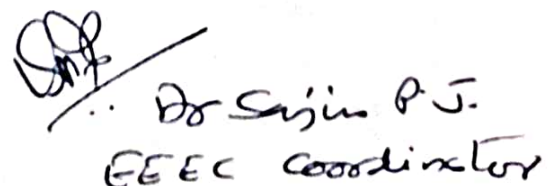 Dr Sijin P. J.
EEEC Coordinator